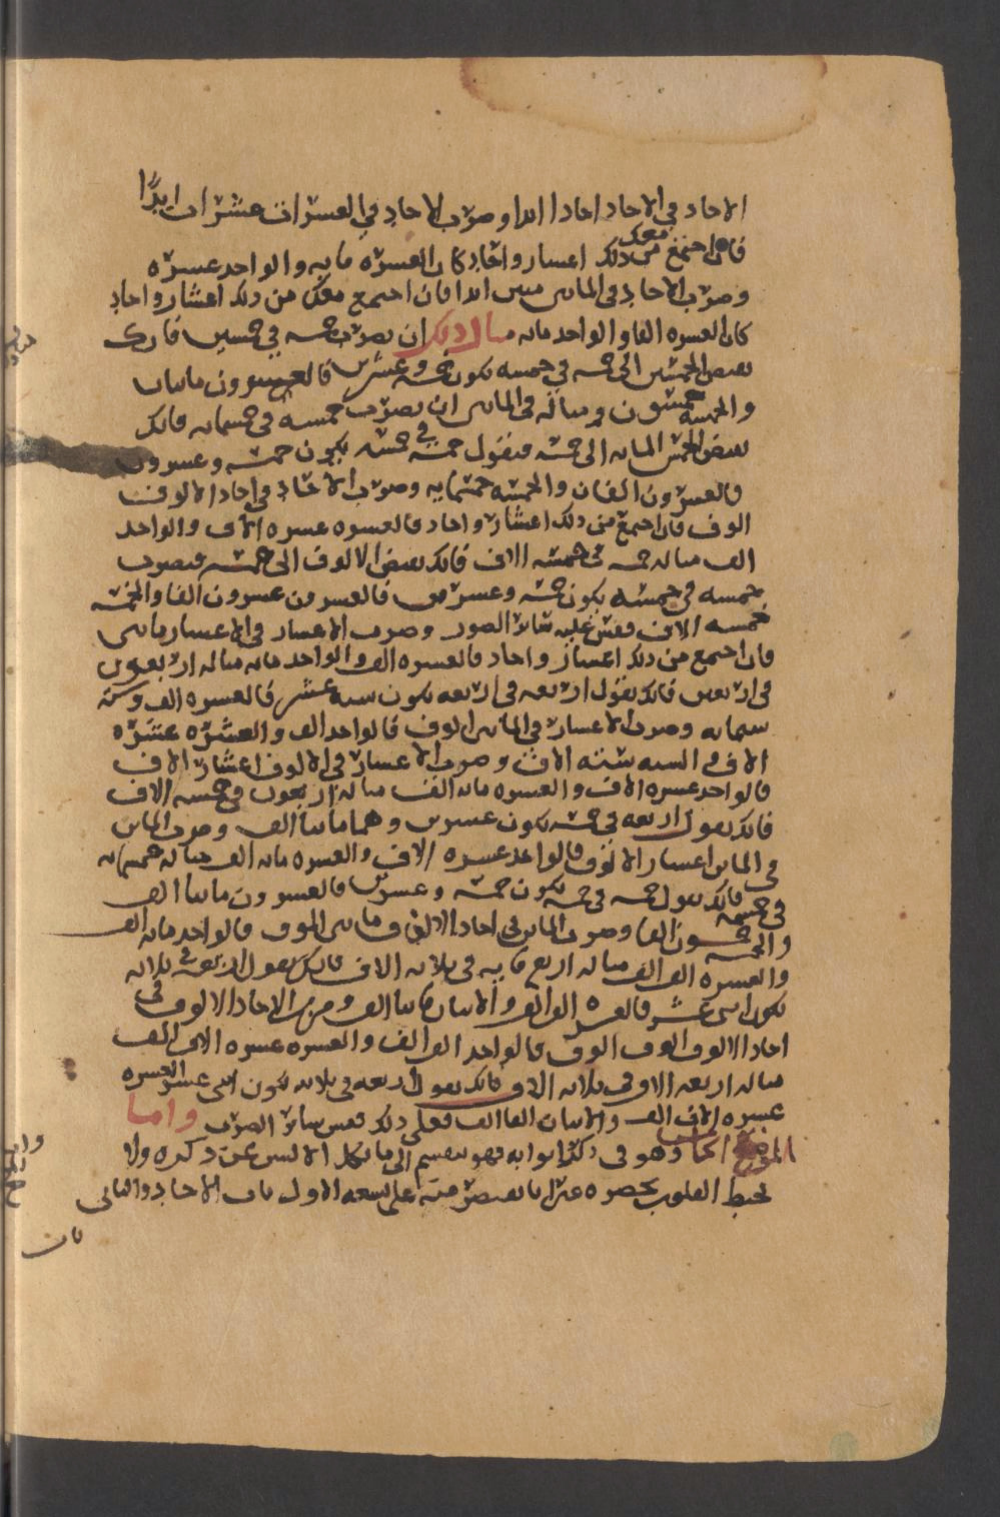 الاحاد في الاحاد احادا ابدا وضرب الاحاد في العشرات عشرات ابدًا
فان اجتمع معك من ذلك اعشار واحاد كان العشره مايه والواحد عشره
وضرب الاحاد في المائين مئين ابدا فان اجتمع معك من ذلك اعشار واحاد
كان العشره الفا والواحد مائه مثال ذلك ان تضرب خمسه في خمسين فانك
تقبض الخمسين الى خمسه في خمسه يكون خمسه وعشرين فالعشرون مائتان
والخمسه خمسون ومثاله في المائين ان تضرب خمسه في خمسمائه فانك
تقبض الخمس المائه الى خمسه فتقول خمسه في خمسه يكون خمسه وعشرون
فالعشرون الفان والخمسه خمسمايه وضرب الاحاد في احاد الالوف
الوف فان اجتمع من ذلك اعشار واحاد فالعشره عشره الاف والواحد
الف مثاله خمسه في خمسه الاف فانك تقبض الالوف الى خمسه فتضرب
خمسه في خمسه يكون خمسه وعشرين فالعشرون عشرون الفا والخمسه
خمسه الاف فقس عليه سائر الصور وضرب الاعشار في الاعشار مائين
فان اجتمع من ذلك اعشار واحاد فالعشره الف والواحد مائه مثاله اربعون
في اربعين فانك تقول اربعه في اربعه يكون سته عشر فالعشره الف وسته
ستمائه وضرب الاعشار في المائين الوف فالواحد الف والعشره عشره
الاف والسته سته الاف وضرب الاعشار في الالوف اعشار الاف
فالواحد عشره الاف والعشره مائه الف مثاله اربعون في خمسه الاف
فانك تقول اربعه في خمسه يكون عشرين وهما مائتا الف وضرب المائين
في المائين اعشار الالوف فالواحد عشره الاف والعشره مائه الف مثاله خمسمائه
في خمسمائه فانك تقول خمسه في خمسه يكون خمسه وعشرين فالعشرون مائتا الف
والخمسه خمسون الفا وضرب المائين في احاد الالوف مائين الوف فالواحد مائه الف
والعشره الف الف مثاله اربع مايه في ثلاثه الاف فانك تقول اربعه في ثلاثه
يكون اثنى عشر فالعشره الف الف والاثنان مائتا الف وضرب الاحاد الالوف في
احاد الالوف الوف الوف فالواحد الف الف والعشره عشره الاف الف
مثاله اربعه الاف في ثلاثه الاف فانك تقول اربعه في ثلاثه يكون اثنى عشر العشره
عشره الاف الف والاثنان الفا الف فعلى ذلك فقس سائر الضرب واما
الموضع وهو في ذكر ابوابه فهو ينقسم الى ما لا ذكره ولا
تحيط القلوب بحصره غير انا نقتصر منه على تسعه الاول باب الاحاد والثاني
باب